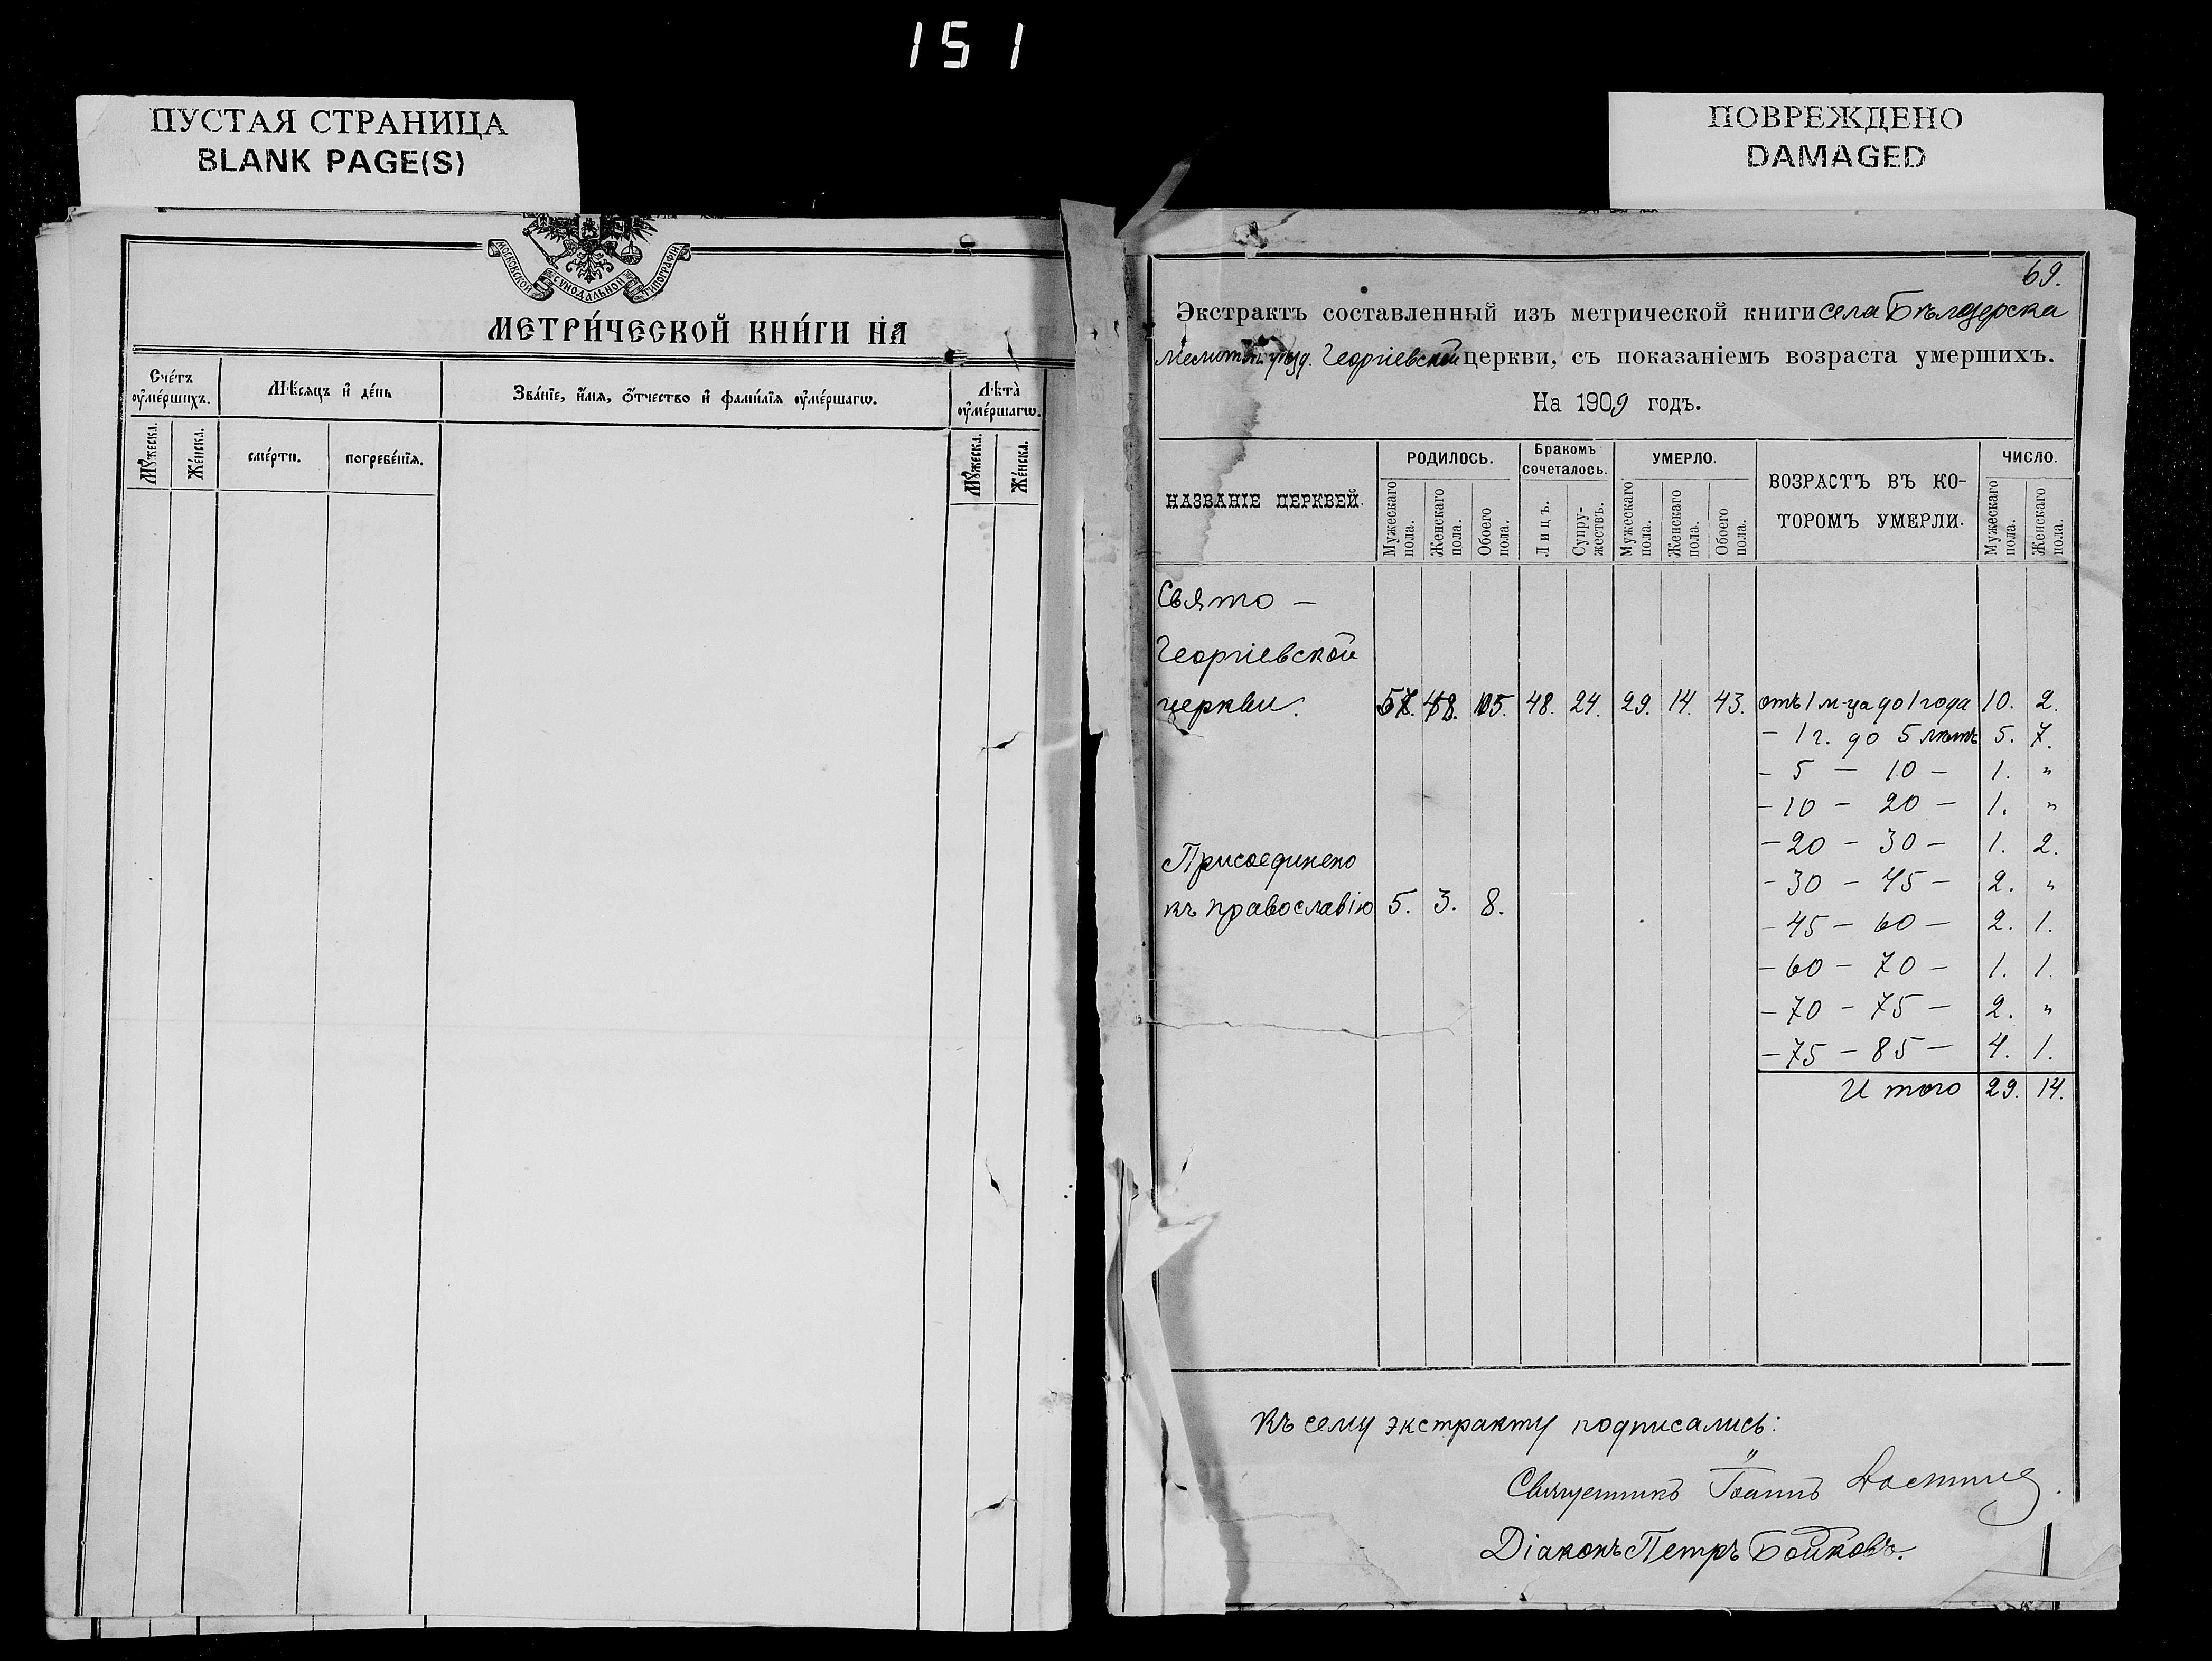 151
ПУСТАЯ СТРАНИЦА
BLANK PAGE(S)
ПОВРЕЖДЕНО
DAMAGED
МОСКОВСКОЙ СѴНОДАЛЬНОЙ ТИПОГРАФІИ
МЕТРИ́ЧЕСКОЙ КНИ́ГИ НА
Сче́тъ ᲂу҆ме́ршихъ.
Мѣ́сяцъ и҆ де́нь
Зва́нїе, и҆́мя, ѻ҆́тчество и҆ фами́лїя ᲂу҆ме́ршагѡ.
Лѣ́та ᲂу҆ме́ршагѡ.
Мꙋ́жеска.
Же́нска.
сме́рти.
погребе́нїя.
Мꙋ́жеска.
Же́нска.
69.
Экстрактъ составленный изъ метрической книги села Бѣлозерска
Мелитоп. уѣзд. Георгіевской церкви, съ показаніемъ возраста умершихъ.
На 1909 годъ.
НАЗВАНІЕ ЦЕРКВЕЙ.
РОДИЛОСЬ.
Бракомъ сочеталось.
УМЕРЛО.
ВОЗРАСТЪ ВЪ КО-
ТОРОМЪ УМЕРЛИ.
ЧИСЛО.
Мужескаго пола.
Женскаго пола.
Обоего пола.
Лицъ.
Супру-жествъ.
Мужескаго пола.
Женскаго пола.
Обоего пола.
Мужескаго пола.
Женскаго пола.
Свято –
Георгіевской
церкви. 57. 48. 105. 48. 24. 29. 14. 43. отъ 1 м-ца до 1 года 10. 2.
– 1 г. до 5 лѣтъ 5. 7.
– 5 – 10 – 1. "
– 10 – 20 – 1. "
– 20 – 30 – 1. 2.
Присоединено
– 30 – 45 – 2. "
къ православію 5. 3. 8.
– 45 – 60 – 2. 1.
– 60 – 70 – 1. 1.
– 70 – 75 – 2. "
– 75 – 85 – 4. 1.
Итого 29. 14.
Къ сему экстракту подписались:
Священникъ Іоаннъ
Діаконъ Петръ Бойковъ.